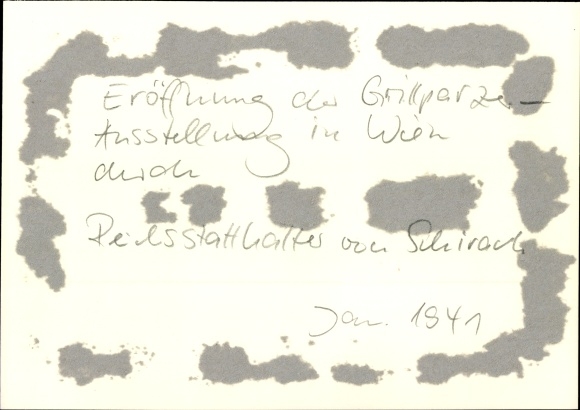 Eröffnung der Grillparzer-
Ausstellung in Wien
durch
Reichsstatthalter von Schirach
Jan. 1941